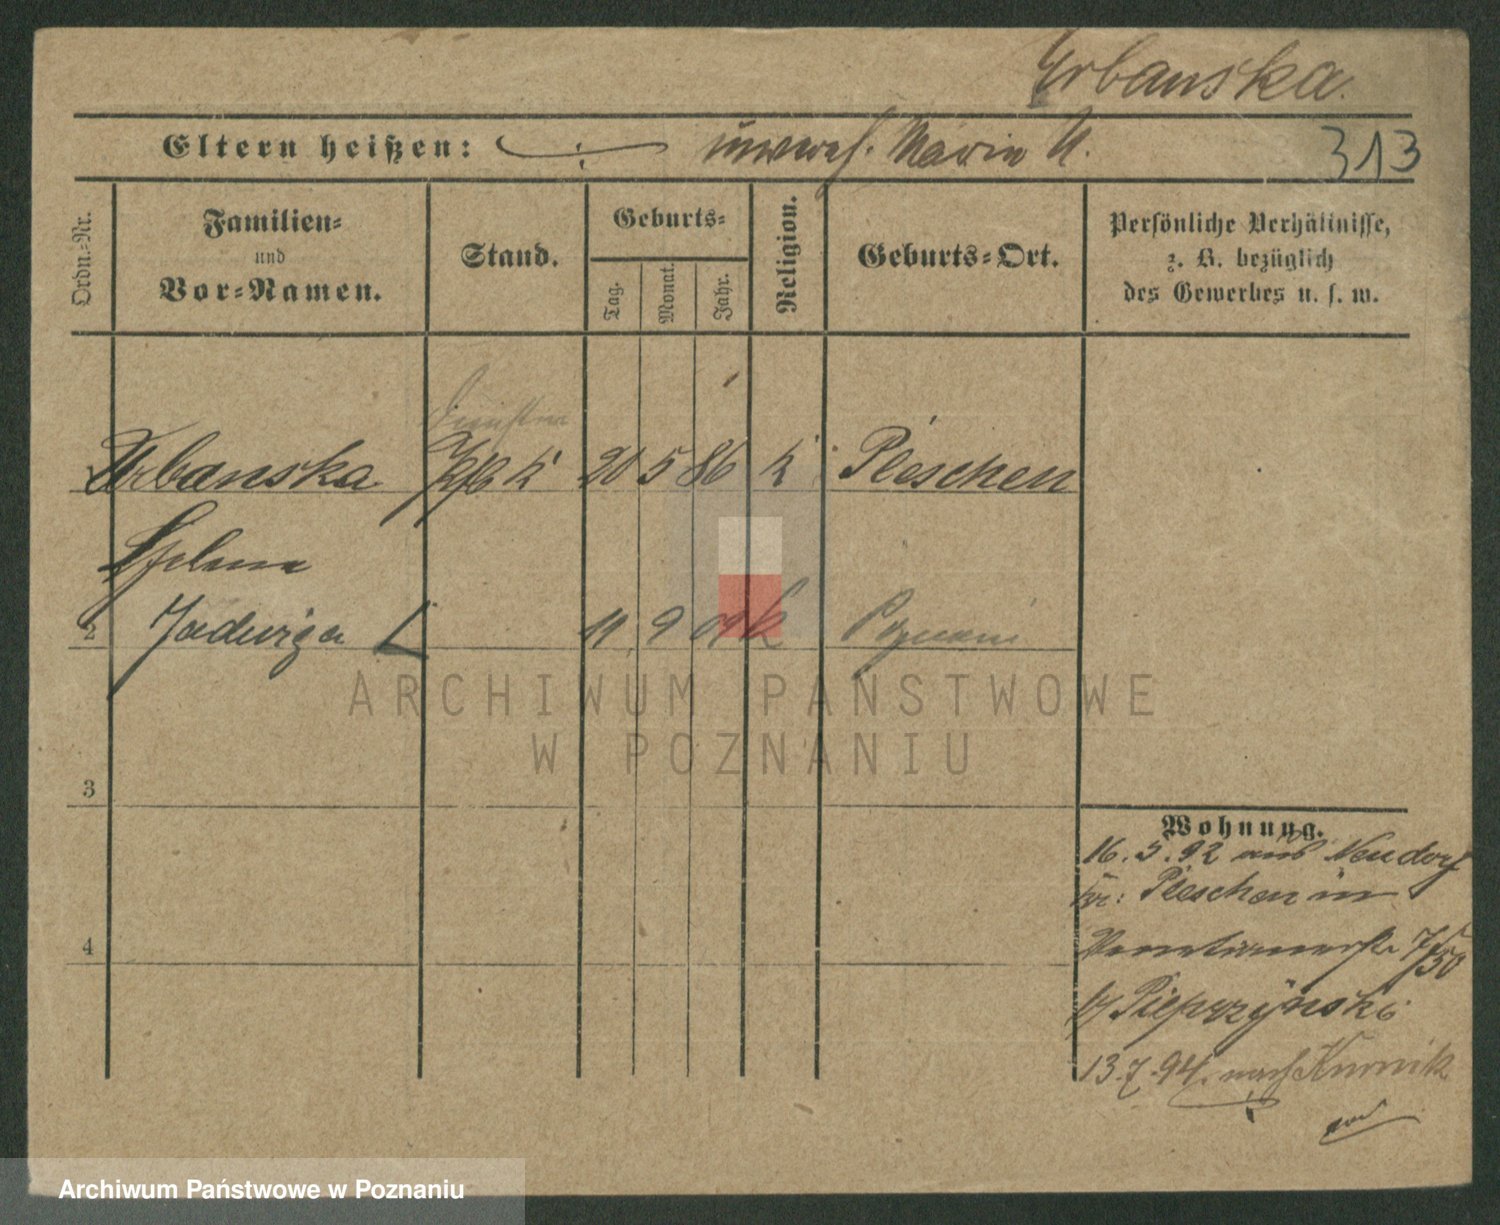 Urbanska.
Eltern heißen: unverh. Maria U.
313
Ordn.-Nr.
Familien-
und
Vor-Namen.
Stand.
Geburts-
Tag.
Monat.
Jahr.
Religion.
Geburts-Ort.
Persönliche Verhältnisse,
z. B. bezüglich
des Gewerbes u. s. w.
Urbanska
20 5 86 k Pleschen
Helene
2 Jadwiga 11 9 09 k Poznań
ARCHIWUM PAŃSTWOWE
W POZNANIU
3
4
Wohnung.
16. 5. 92 aus Neudorf
Kr: Pleschen in
7/50
b/ Pieprzynski
13. 7. 94. nach Kurnik
Archiwum Państwowe w Poznaniu